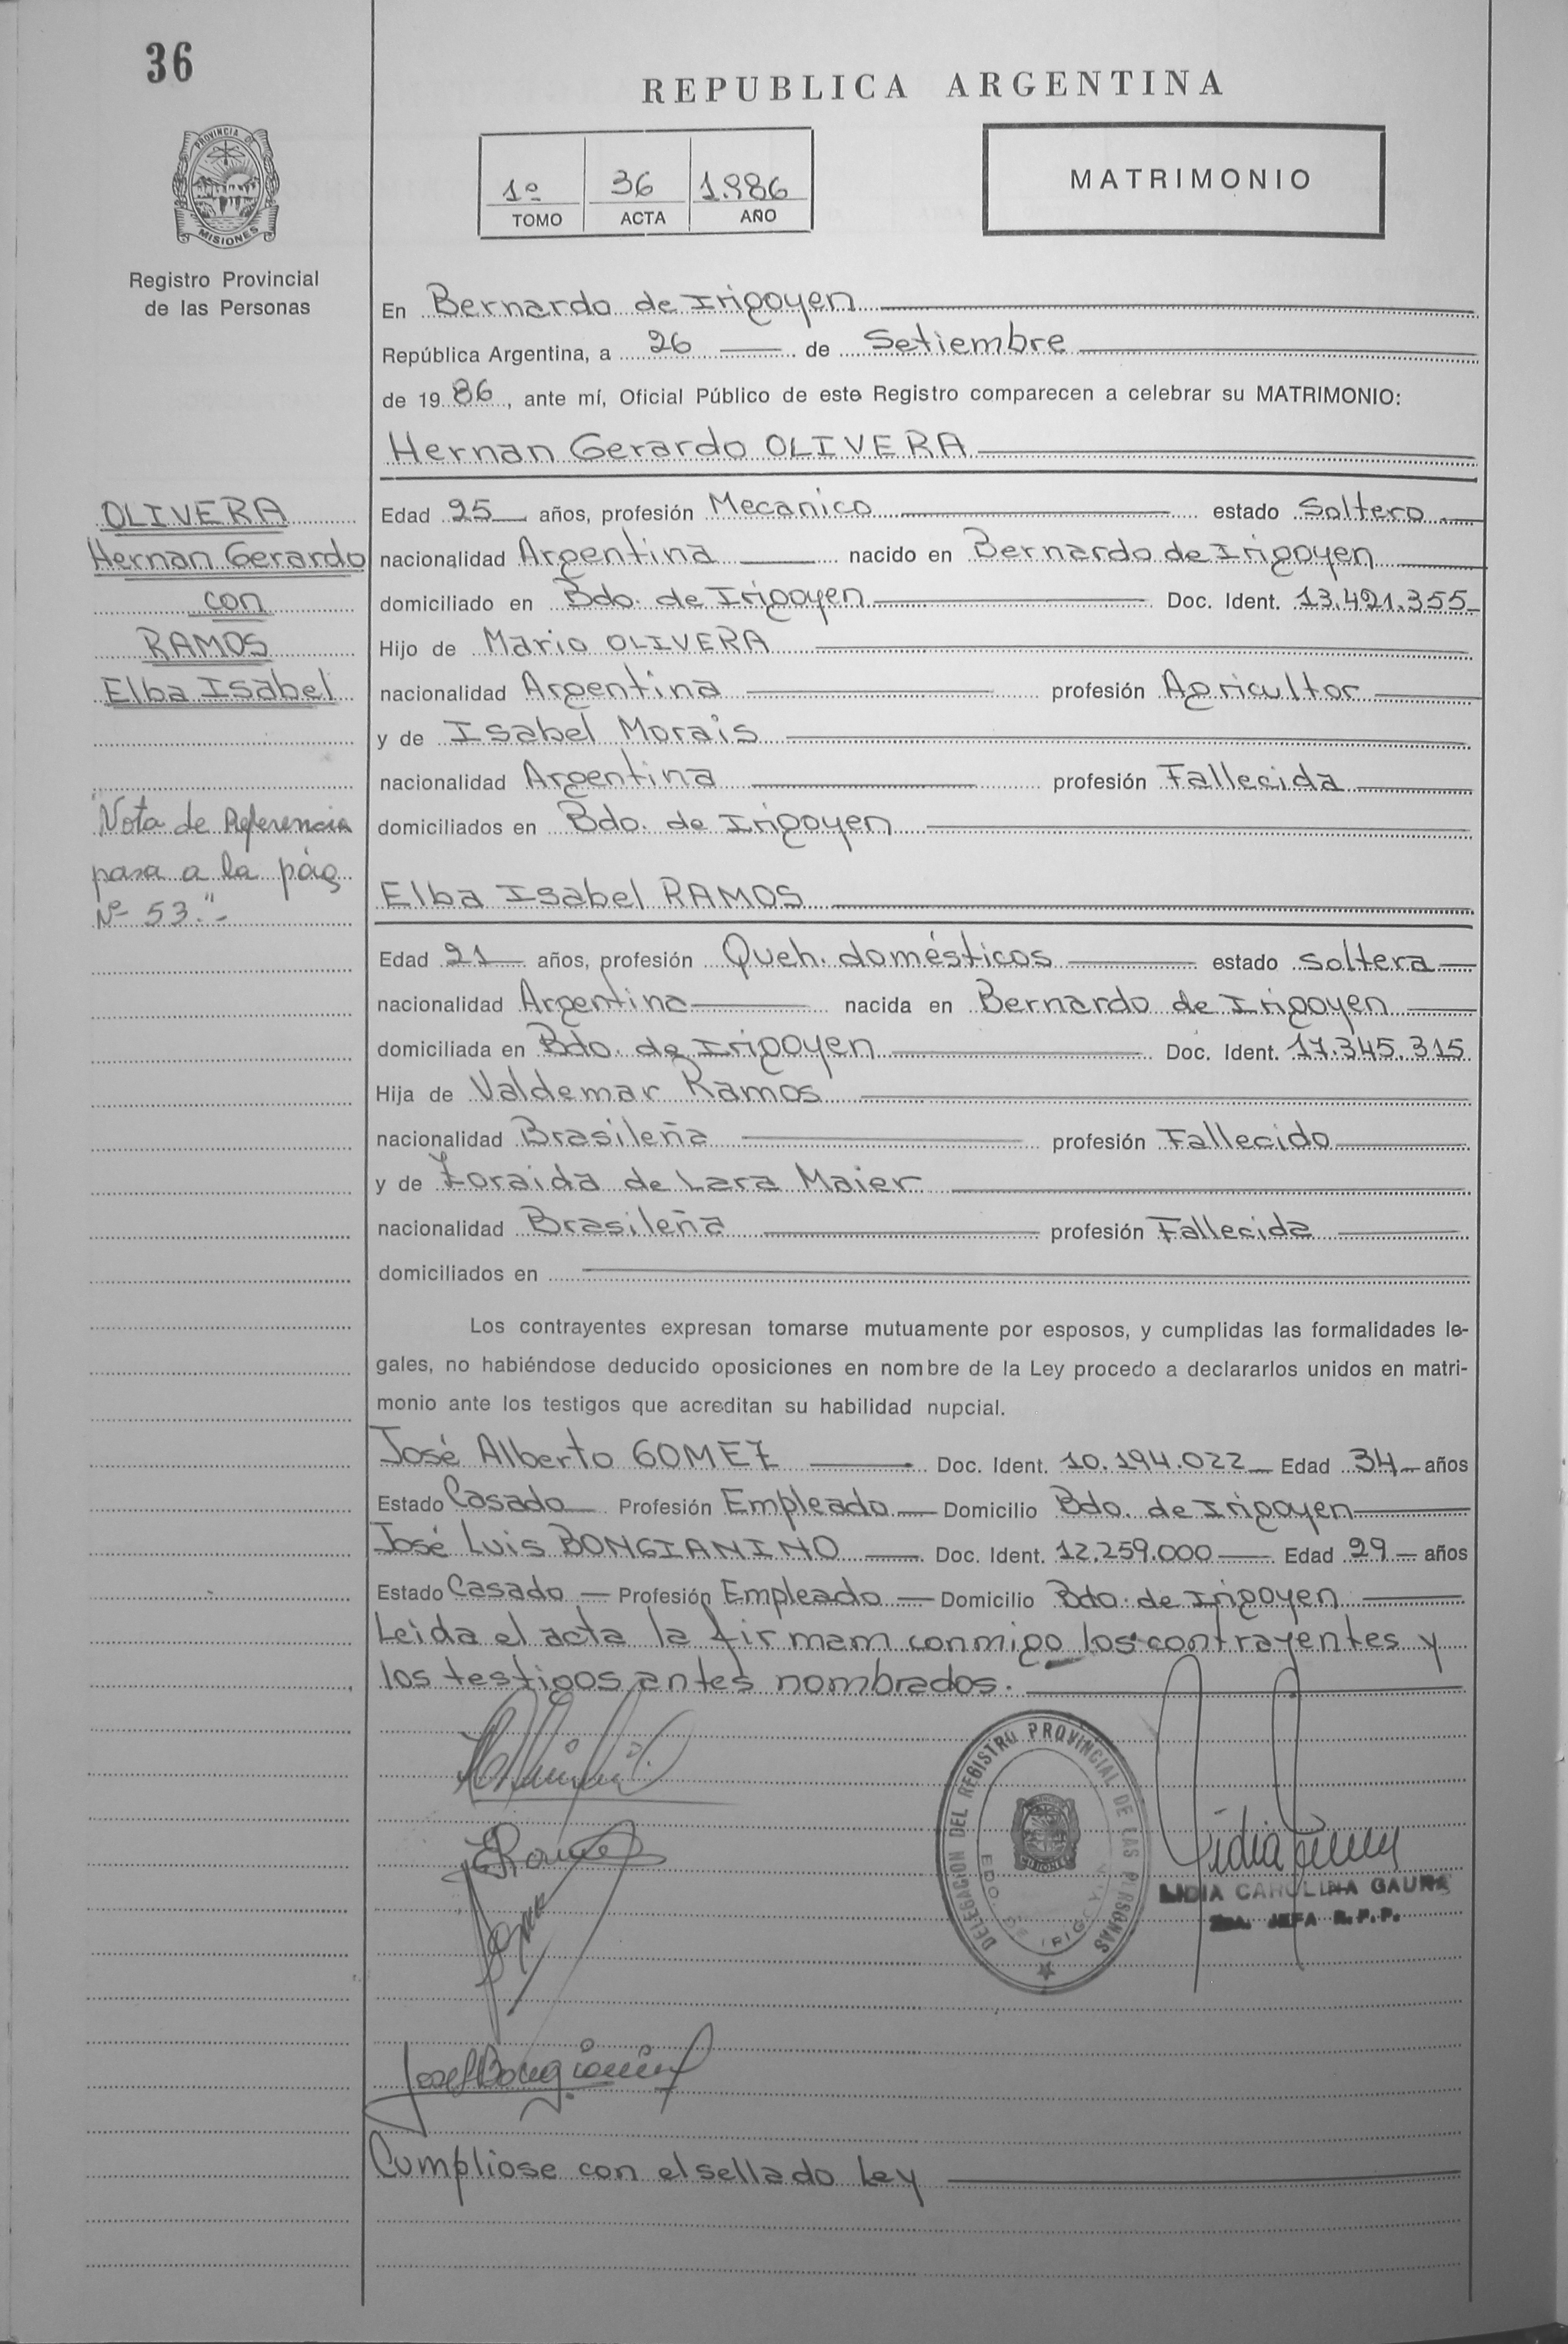 36
REPUBLICA ARGENTINA
PROVINCIA DE
MISIONES
Registro Provincial
de las Personas
1º 36 1.986
TOMO ACTA AÑO
MATRIMONIO
En Bernardo de Irigoyen
República Argentina, a 26 de Setiembre
de 19 86, ante mí, Oficial Público de este Registro comparecen a celebrar su MATRIMONIO:
Hernan Gerardo OLIVERA
OLIVERA
Hernan Gerardo
con
RAMOS
Elba Isabel
"Nota de Referencia
pasa a la pág
Nº 53."-
Edad 25 años, profesión Mecanico estado Soltero
nacionalidad Argentina nacido en Bernardo de Irigoyen
domiciliado en Bdo. de Irigoyen Doc. Ident. 13.421.355
Hijo de Mario OLIVERA
nacionalidad Argentina profesión Agricultor
y de Isabel Morais
nacionalidad Argentina profesión Fallecida
domiciliados en Bdo. de Irigoyen
Elba Isabel RAMOS
Edad 21 años, profesión Queh. domésticos estado soltera
nacionalidad Argentina nacida en Bernardo de Irigoyen
domiciliada en Bdo. de Irigoyen Doc. Ident. 17.345.315
Hija de Valdemar Ramos
nacionalidad Brasileña profesión Fallecido
y de Zoraida de Lara Maier
nacionalidad Brasileña profesión Fallecida
domiciliados en
Los contrayentes expresan tomarse mutuamente por esposos, y cumplidas las formalidades le-
gales, no habiéndose deducido oposiciones en nombre de la Ley procedo a declararlos unidos en matri-
monio ante los testigos que acreditan su habilidad nupcial.
José Alberto GOMEZ Doc. Ident. 10.194.022 Edad 34 años
Estado Casado Profesión Empleado Domicilio Bdo. de Irigoyen
José Luis BONGIANINO Doc. Ident. 12.259.000 Edad 29 años
Estado Casado Profesión Empleado Domicilio Bdo. de Irigoyen
Leida el acta la firmam conmigo los contrayentes y
los testigos antes nombrados.
DELEGACION DEL REGISTRO PROVINCIAL DE LAS PERSONAS
BDO. DE IRIGOYEN
MISIONES
LIDIA CAROLINA GAUNA
2DA. JEFA R.P.P.
Cumpliose con el sellado Ley